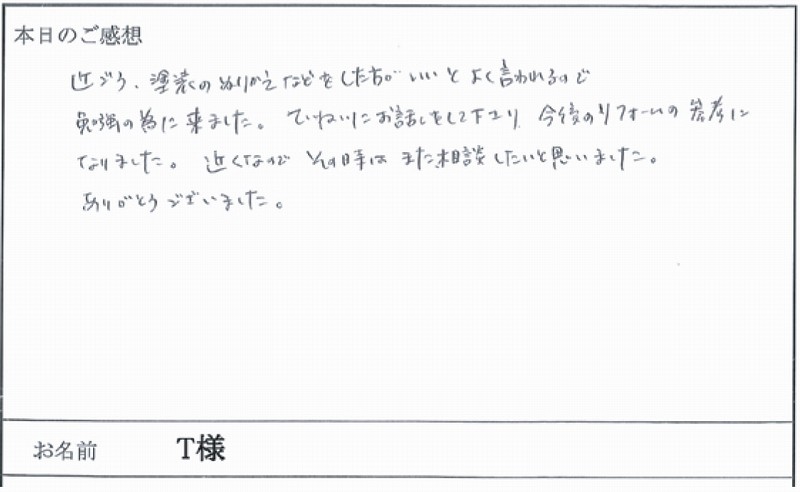 本日のご感想
近ごろ、塗装のぬりかえなどをした方がいいとよく言われるので
勉強の為に来ました。ていねいにお話しをして下さり、今後のリフォームの参考に
なりました。近くなので その時は また相談したいと思いました。
ありがとうございました。
お名前 T様